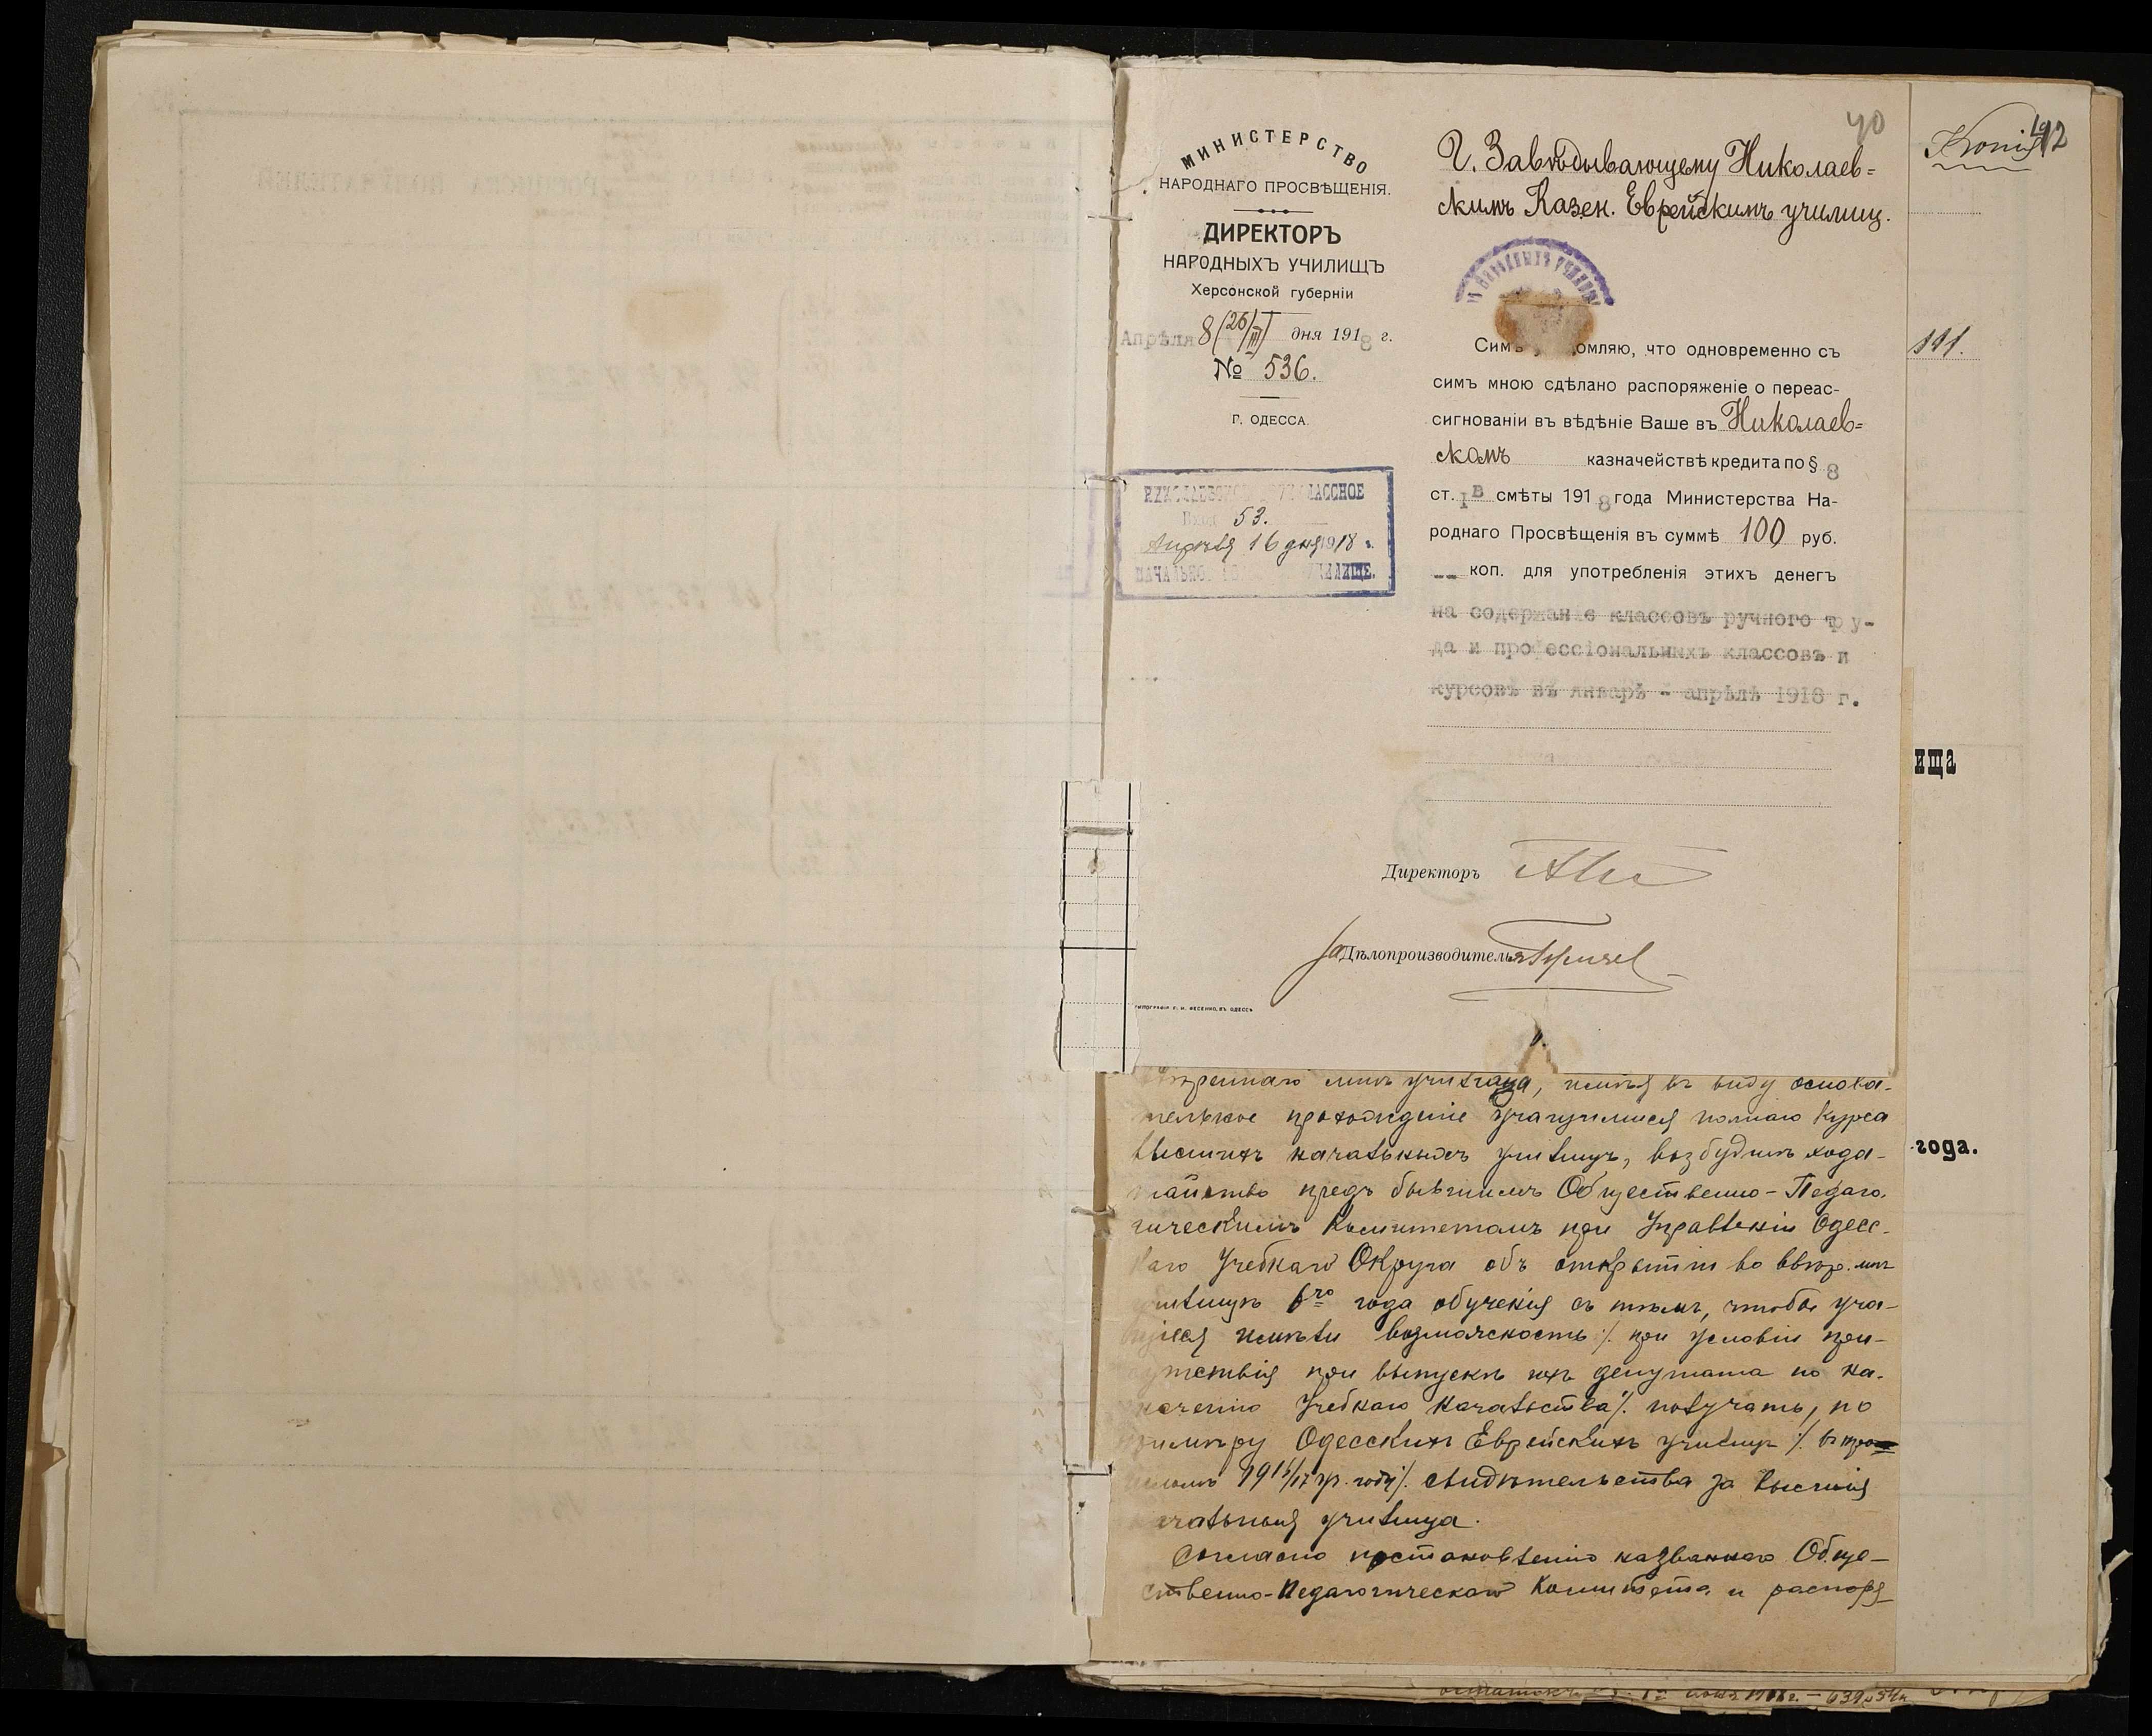 40
МИНИСТЕРСТВО
НАРОДНАГО ПРОСВѢЩЕНІЯ.
ДИРЕКТОРЪ
НАРОДНЫХЪ УЧИЛИЩЪ
Херсонской губерніи
Апрѣля 8 (26/III) дня 1918 г.
№ 536.
Г. ОДЕССА.
53.
Апрѣля 16 дня 1918 г.
УЧИЛИЩЕ.
Г. Завѣдывающему Николаев=
скимъ Казен. Еврейскимъ училищ.
Симъ омляю, что одновременно съ
симъ мною сдѣлано распоряженіе о переас-
сигнованіи въ вѣдѣніе Ваше въ Николаев=
скомъ казначействѣ кредита по § 8
ст. 1 в смѣты 1918 года Министерства На-
роднаго Просвѣщенія въ суммѣ 100 руб.
-- коп. для употребленія этихъ денегъ
на содержаніе классовъ ручного тру-
да и профессіональныхъ классовъ и
курсовъ въ январѣ - апрѣлѣ 1918 г.
Директоръ
За Дѣлопроизводителя
ТИПОГРАФІЯ Е. И. ФЕСЕНКО, ВЪ ОДЕССѢ
училища, имѣя въ виду основа-
тельное прохожденіе учащимися полнаго курса
высшихъ начальныхъ училищъ, возбудилъ хода-
тайство предъ бывшимъ Общественно-Педаго-
гическимъ Комитетомъ при Управленіи Одесс-
каго Учебнаго Округа объ открытіи во ввѣр. мнѣ
училищѣ 6го года обученія съ тѣмъ, чтобы уча-
щіеся имѣли возможность /. при условіи при-
сутствія при выпускѣ ихъ депутата по на-
значенію Учебнаго Начальства /. получать, по
примѣру Одесскихъ Еврейскихъ училищъ /. въ про-
шломъ 1916/17 уч. году /. свидѣтельства за высшія
начальныя училища.
Согласно постановленію названнаго Обще-
ственно-Педагогическаго Комитета и распоря-
42
191.
ища
года.
1918 г. - 639 р 54 к